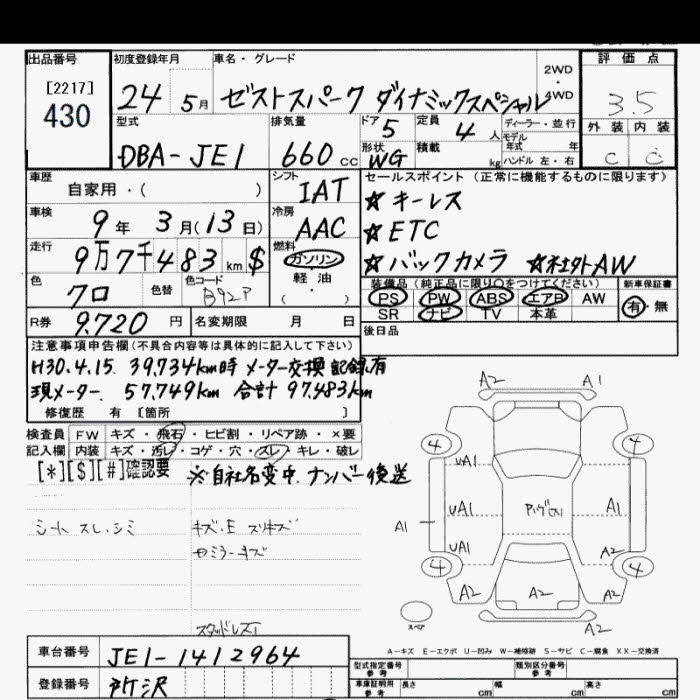 出品番号 初度登録年月 車名・グレード 評価点
[2217]
430
24 5月 ゼストスパーク ダイナミックスペシャル 2WD・4WD 3.5
型式 排気量 ドア 5 定員 4人 ディーラー・並行 外装 内装
モデル年式 年
DBA-JE1 660cc 形状 WG 積載 kg ハンドル 左・右 C C
車歴 シフト セールスポイント (正常に機能するものに限ります)
自家用・( ) IAT ☆キーレス
車検 9年 3月(13日) 冷房 AAC ☆ETC
走行 9万7千483km $ 燃料 ガソリン・軽油 ( ) ☆バックカメラ ☆社外AW
色 クロ 色替 色コード B92P
装備品(純正品に限り○をつけてください) 新車保証書
PS PW ABS エアB AW 有・無
SR ナビ TV 本革
R券 9,720円 名変期限 月 日 後日品
注意事項申告欄(不具合内容等は具体的に記入して下さい)
H30.4.15. 39,734km時 メーター交換記録有
現メーター. 57,749km 合計 97,483km
修復歴 有 [箇所 ]
検査員 FW キズ・飛石・ヒビ割・リペア跡・×要
記入欄 内装 キズ・汚レ・コゲ・穴・スレ・キレ・破レ
[*][$][#]確認要 ※自社名変中.ナンバー後送
シート スレ.シミ キズ・E スリキズ
ミラーキズ
スタッドレス
A2 A1
4 4
UA1
UA1 A1
A1
UA1 A2
4 4
A2 A2 A2
スペア A2
A-キズ E-エクボ U-凹み W-補修跡 S-サビ C-腐食 XX-交換済
車台番号 JE1-1412964
型式指定番号 参考 類別区分番号 参考
登録番号 所沢
車庫証明用 参考 長さ cm 幅 cm 高さ cm